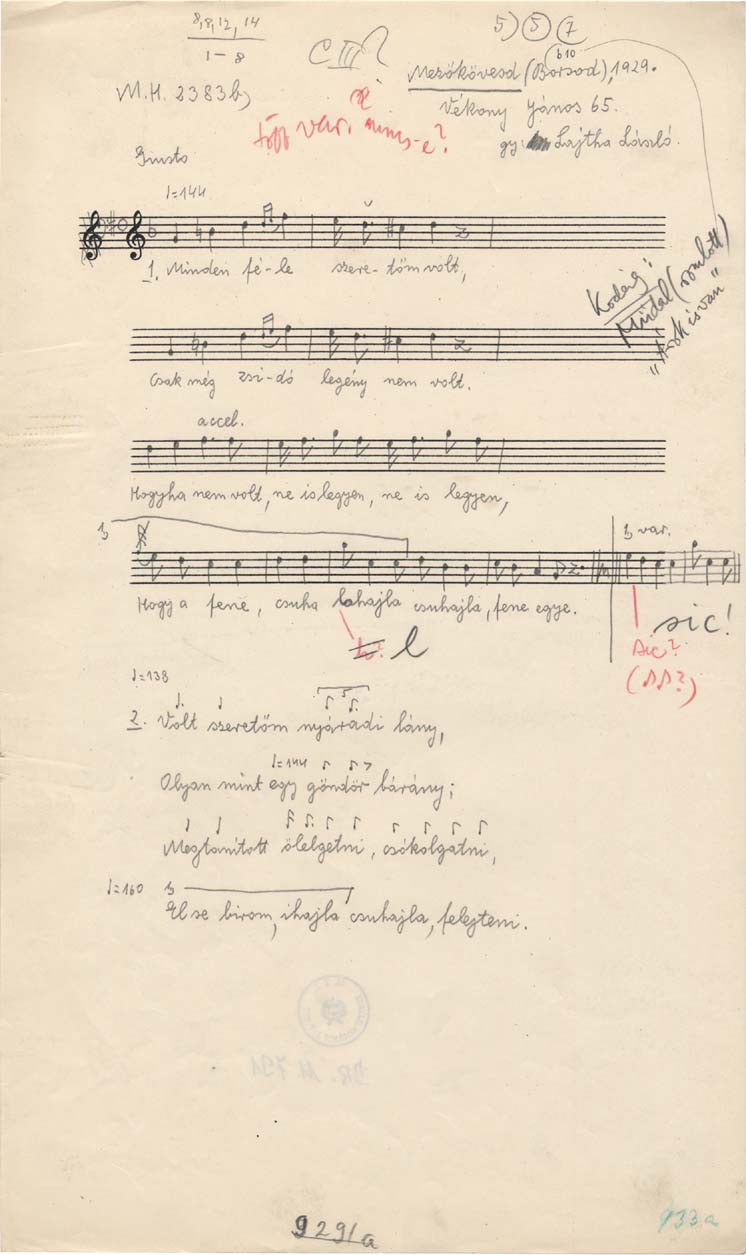 8, 8, 12, 14
1 – 8
C III?
5) 5 7
b10
Mezőkövesd (Borsod), 1929.
M.H. 2383b)
Vékony János 65.
több var. nincs-e?
gy. Lajtha László.
Giusto
♩=144
1. Minden fé-le szere-tőm volt,
Kodály:
Műdal (romlott)
"Árok is van"
Csak még zsi-dó legény nem volt.
accel.
Hogyha nem volt, ne is legyen, ne is legyen,
1) var.
Hogy a fene, csuha lahajla csuhajla, fene egye.
sic!
l
sic?
(♪♪?)
♩=138
5
2. Volt szeretőm nyáradi lány,
♩=144
Olyan mint egy göndör bárány;
Megtanított ölelgetni, csókolgatni,
♩=160
El se birom, ihajla csuhajla, felejteni.
BR. M 791
9291a
933a